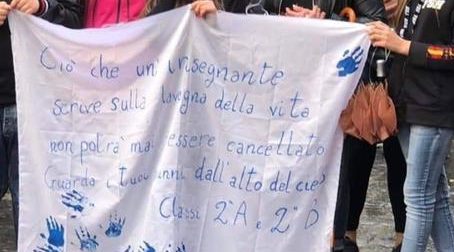 Ciò che un' insegnante
scrive sulla lavagna della vita
non potrà mai essere cancellato
Guarda i tuoi anni dall'alto del cielo
Classi 2ªA e 2ª D